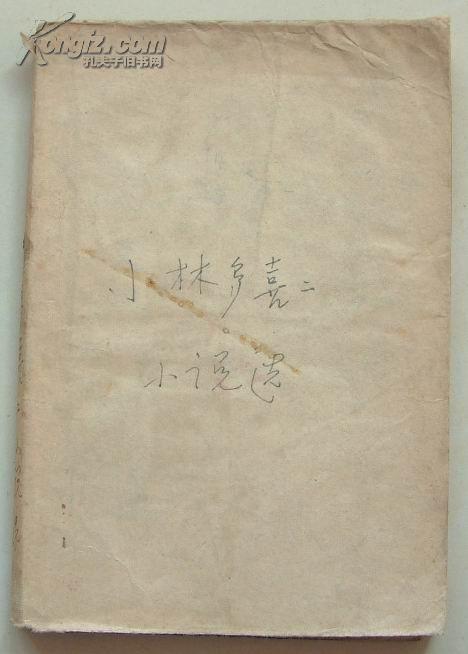 Kongfz.com
孔夫子旧书网
小林多喜二
小说选